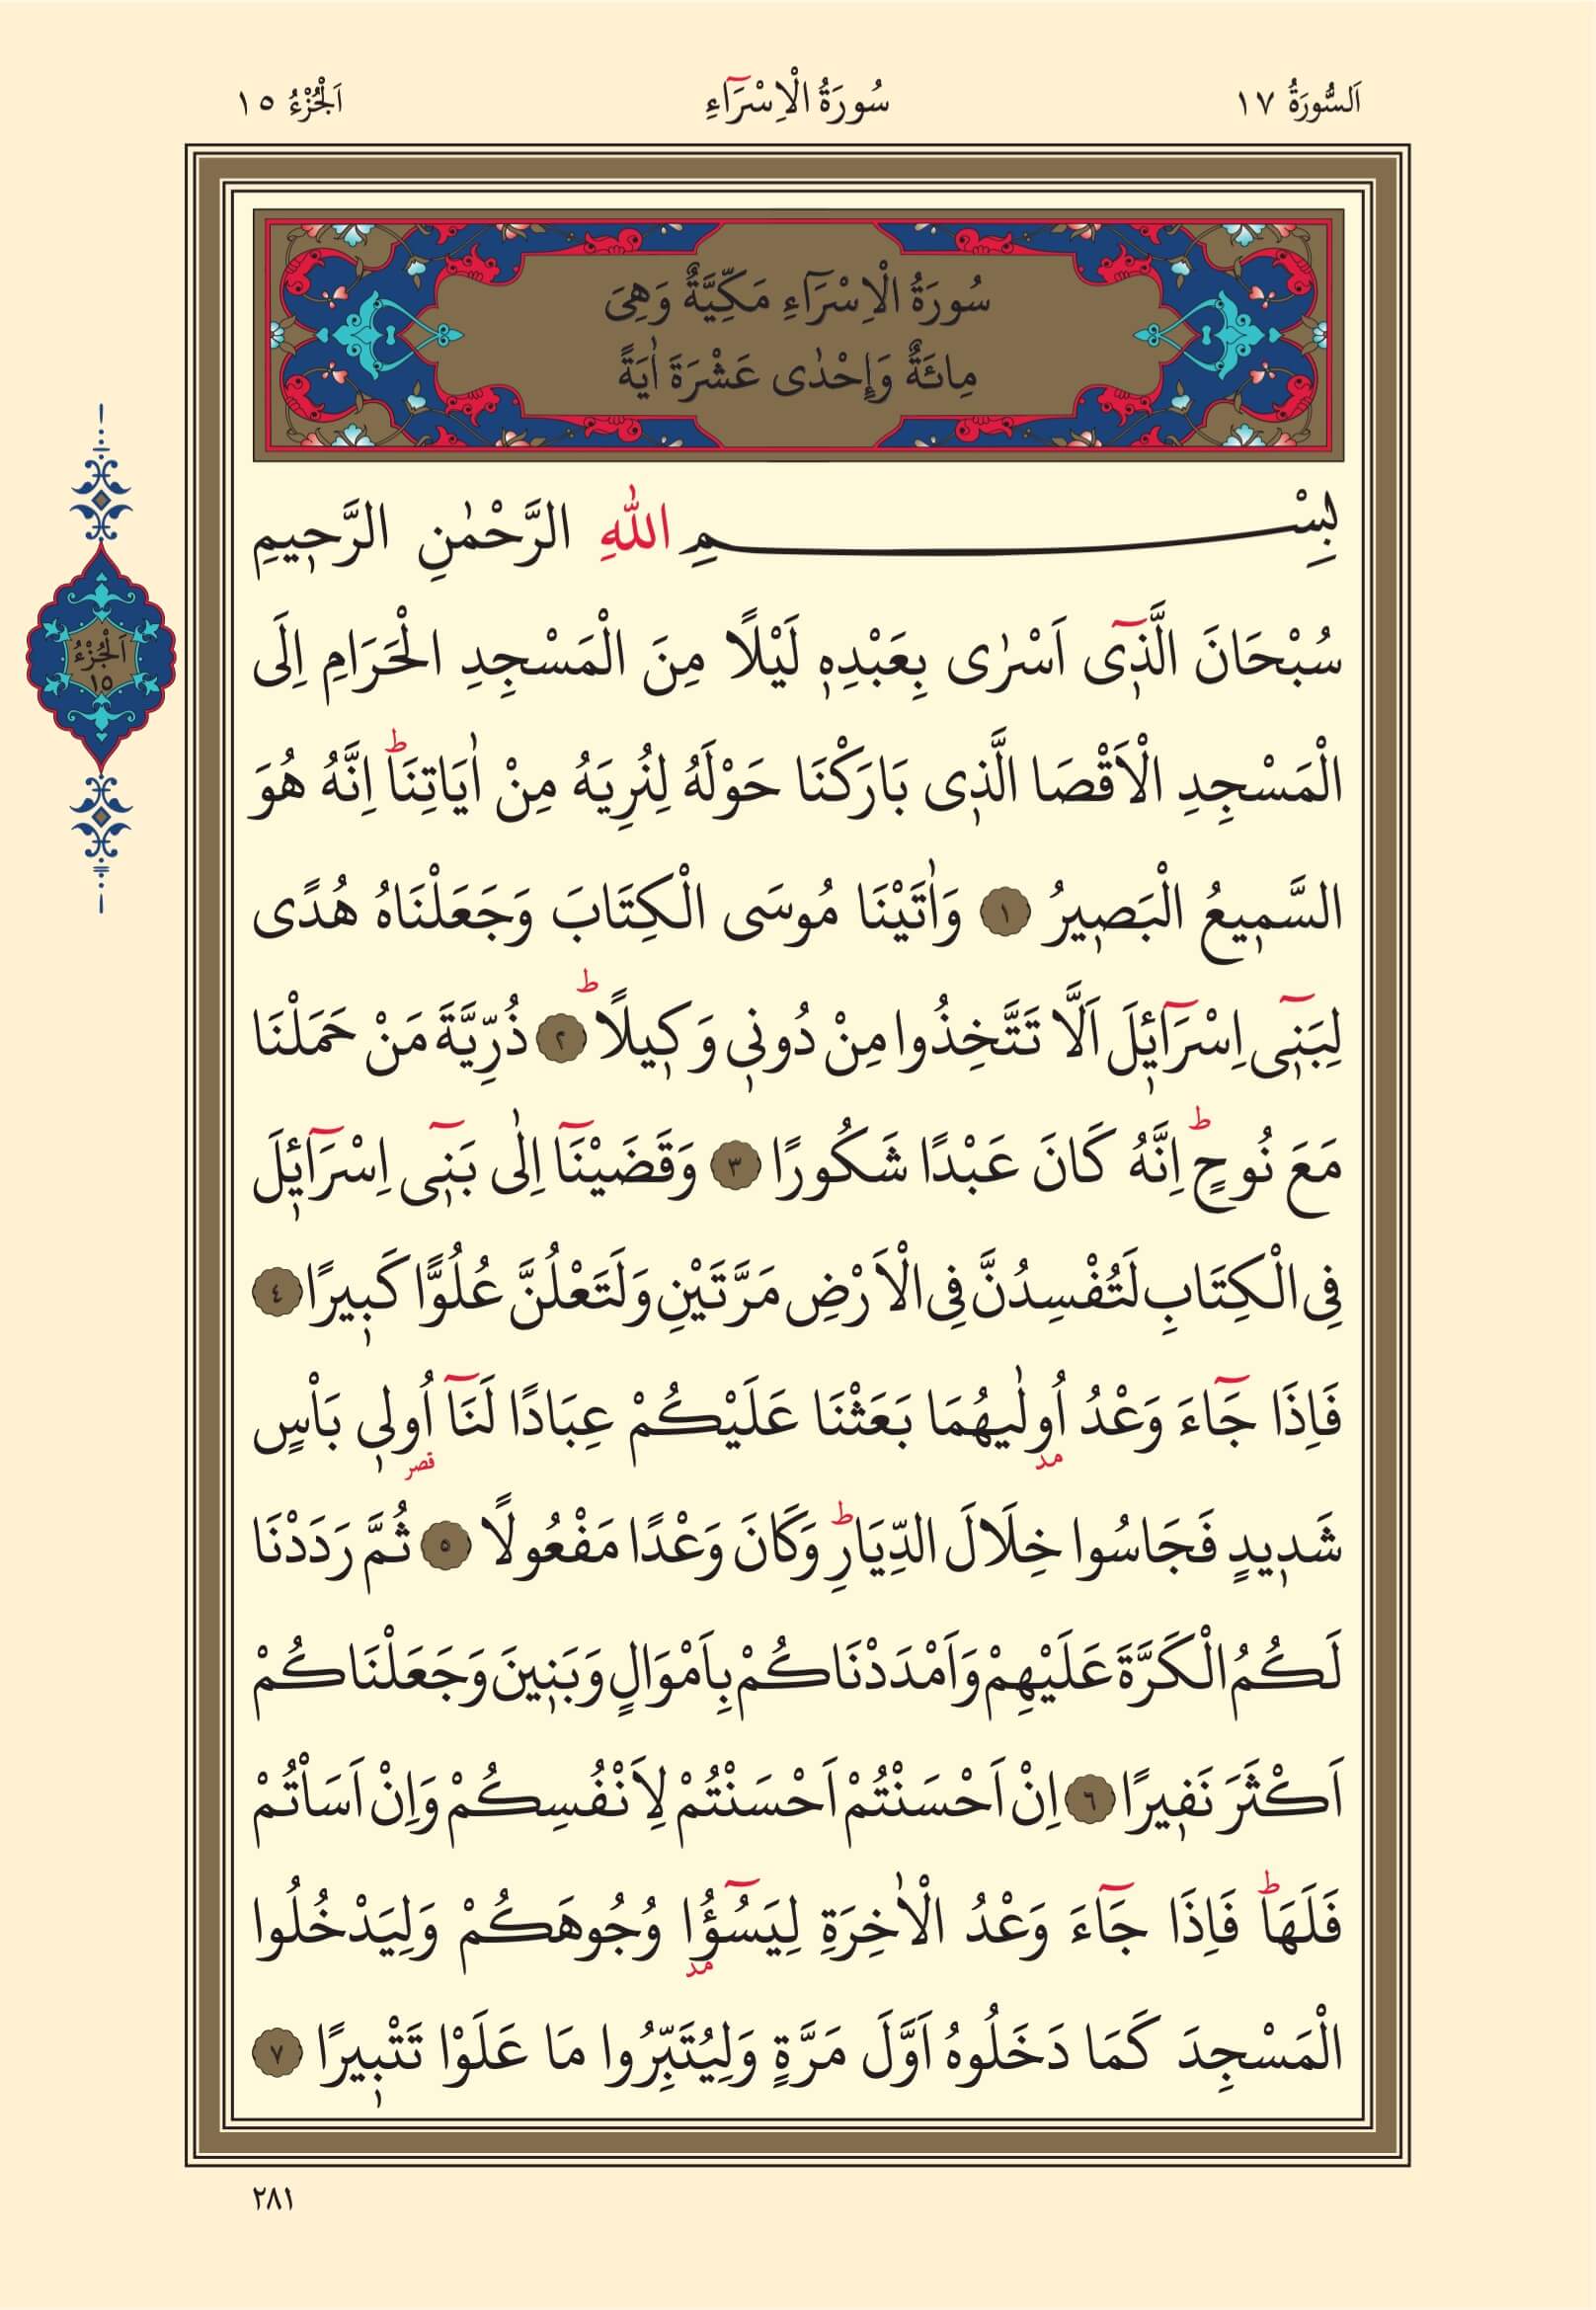 اَلسُّورَةُ ١٧ سُورَةُ الْاِسْرَٓاءِ اَلْجُزْءُ ١٥
سُورَةُ الْاِسْرَٓاءِ مَكِّيَّةٌ وَهِىَ
مِائَةٌ وَإِحْدٰى عَشْرَةَ اٰيَةً
بِسْمِ اللّٰهِ الرَّحْمٰنِ الرَّح۪يمِ
سُبْحَانَ الَّذ۪ٓى اَسْرٰى بِعَبْدِه۪ لَيْلًا مِنَ الْمَسْجِدِ الْحَرَامِ اِلَى
اَلْجُزْءُ
١٥
الْمَسْجِدِ الْاَقْصَا الَّذ۪ى بَارَكْنَا حَوْلَهُ لِنُرِيَهُ مِنْ اٰيَاتِنَاۜ اِنَّهُ هُوَ
السَّم۪يعُ الْبَص۪يرُ ١ وَاٰتَيْنَا مُوسَى الْكِتَابَ وَجَعَلْنَاهُ هُدًى
لِبَن۪ٓى اِسْرَٓائ۪لَ اَلَّا تَتَّخِذُوا مِنْ دُون۪ى وَك۪يلًاۜ ٢ ذُرِّيَّةَ مَنْ حَمَلْنَا
مَعَ نُوحٍۜ اِنَّهُ كَانَ عَبْدًا شَكُورًا ٣ وَقَضَيْنَٓا اِلٰى بَن۪ٓى اِسْرَٓائ۪لَ
فِى الْكِتَابِ لَتُفْسِدُنَّ فِى الْاَرْضِ مَرَّتَيْنِ وَلَتَعْلُنَّ عُلُوًّا كَب۪يرًا ٤
فَاِذَا جَٓاءَ وَعْدُ اُو۫لٰيهُمَا بَعَثْنَا عَلَيْكُمْ عِبَادًا لَنَٓا اُو۬ل۪ى بَاْسٍ
مد قصر
شَد۪يدٍ فَجَاسُوا خِلَالَ الدِّيَارِۜ وَكَانَ وَعْدًا مَفْعُولًا ٥ ثُمَّ رَدَدْنَا
لَكُمُ الْكَرَّةَ عَلَيْهِمْ وَاَمْدَدْنَاكُمْ بِاَمْوَالٍ وَبَن۪ينَ وَجَعَلْنَاكُمْ
اَكْثَرَ نَف۪يرًا ٦ اِنْ اَحْسَنْتُمْ اَحْسَنْتُمْ لِاَنْفُسِكُمْ وَاِنْ اَسَاْتُمْ
فَلَهَاۜ فَاِذَا جَٓاءَ وَعْدُ الْاٰخِرَةِ لِيَسُٓؤُ۫ا وُجُوهَكُمْ وَلِيَدْخُلُوا
مد
الْمَسْجِدَ كَمَا دَخَلُوهُ اَوَّلَ مَرَّةٍ وَلِيُتَبِّرُوا مَا عَلَوْا تَتْب۪يرًا ٧
٢٨١